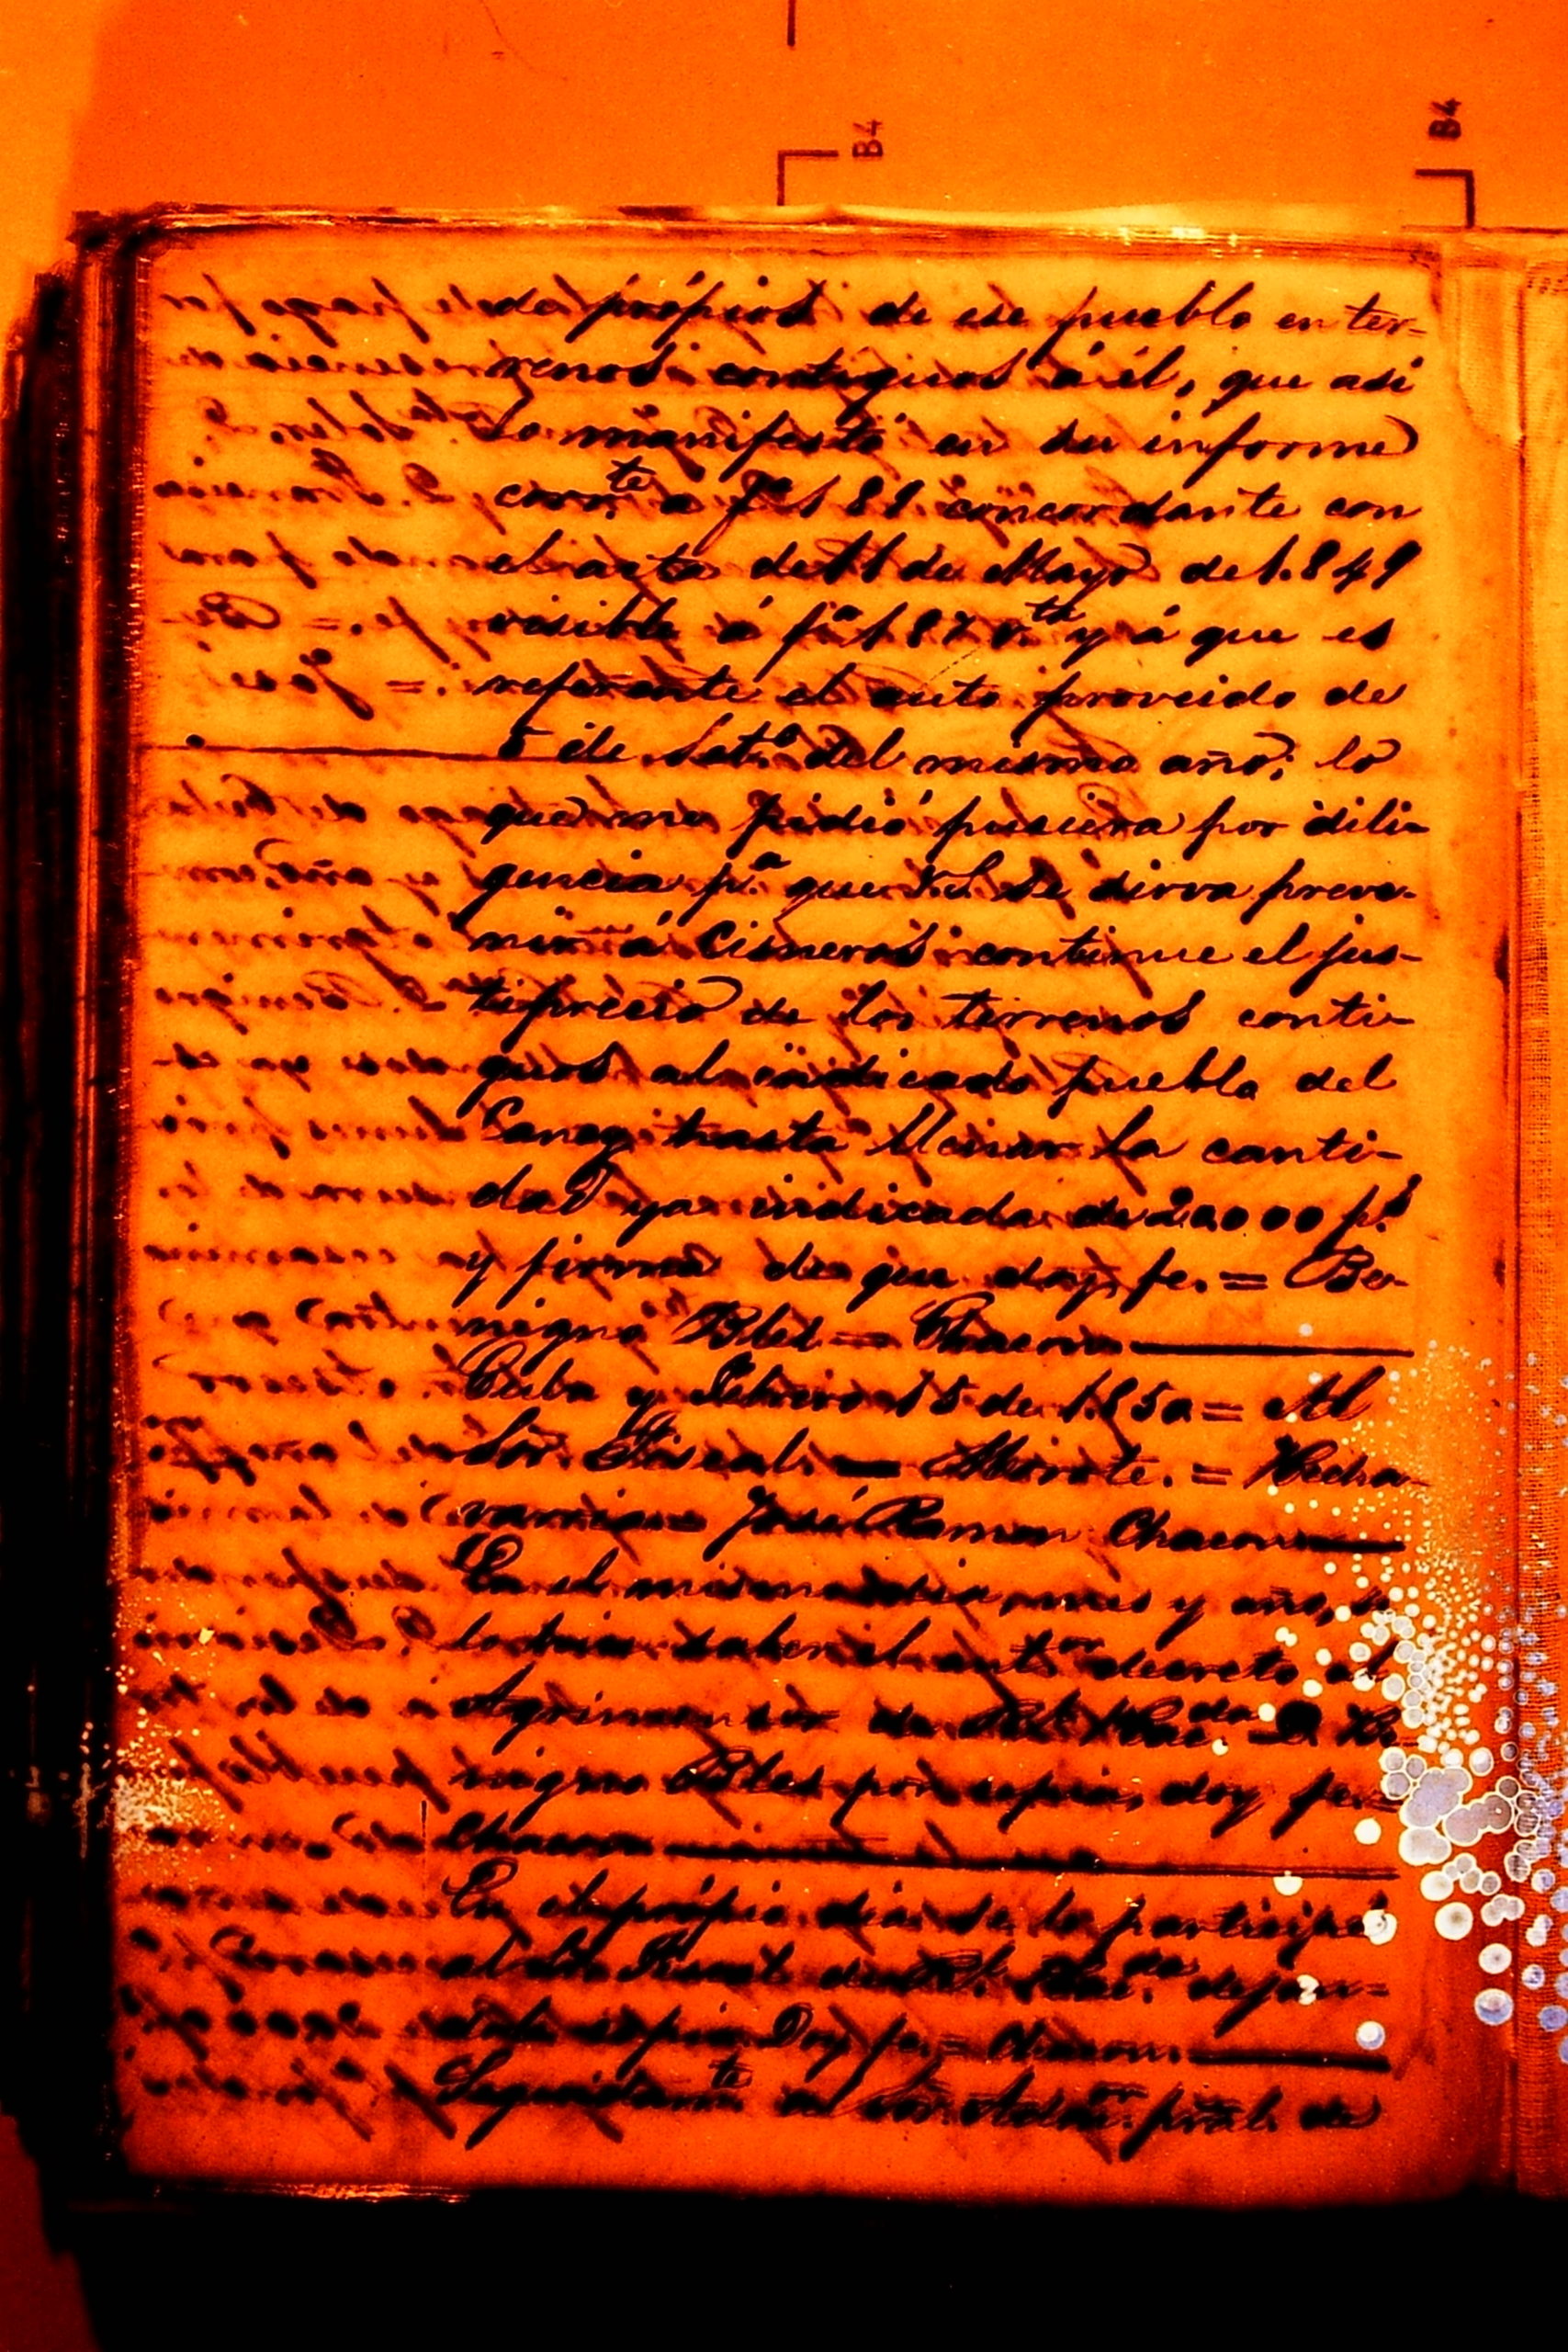 B4
B4
de própios de ese pueblo en ter-
renos contiguos á él, que asi
lo manifestó en su informe
corr.te a f.s 181 concordante con
el acta de 11 de Mayo de 1.849
visible á f.s 187 v.ta y á que es
referente el auto proveido de
5 de Set.e del mismo año; lo
que me pidió pusiera por dili-
gencia p.a que V.S. se sirva preve-
nir á Cisneros continue el jus-
tiprecio de los terrenos conti-
guos al indicado pueblo del
Caney hasta llenar la canti-
dad ya indicada de 20.000 p.s
y firma de que doy fe. = Be-
nigno Bles = Chacon
Cuba y Febrero 15 de 1.850 = Al
Sor. Fiscal. = Morote. = Hecha-
varria = José Ramon Chacon
En el mismo dia, mes y año,
saber el ant.or decreto al
Agrimensor de Rl. Hac.da D. Be-
nigno Bles por copia, doy fe. =
Chacon
En el própio dia se le participó
al Sor. Fiscal de Rl. Hac.da dejan-
copia Doy fe. = Chacon
Seguidam.te al Sor. Adm.or pral. de